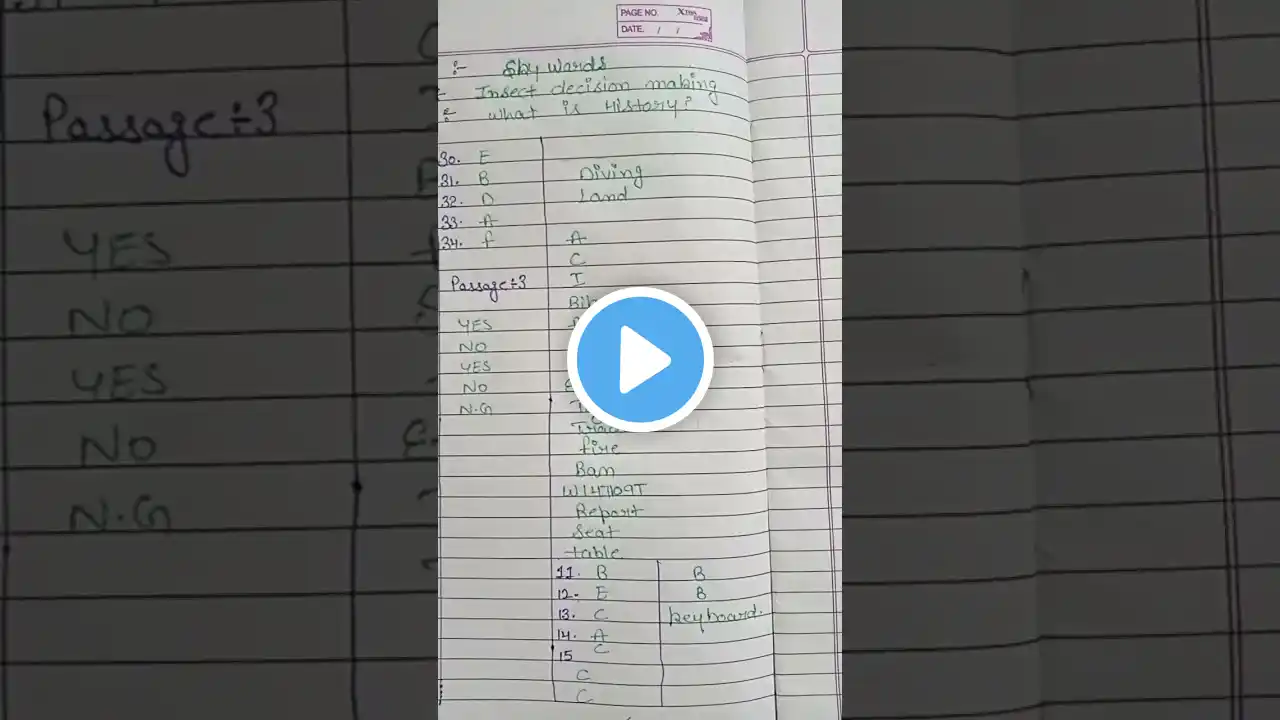 PAGE NO.
DATE. / /
:- Sky wards
Insect decision making
What is History?
30. E
31. B
32. D
33. A
34. f
Passage÷3
YES
NO
YES
NO
N.G
Diving
Land
A
C
I
fire
Ban
W14T109T
Report
Seat
table
11. B
12. E
13. C
14. A
15 C
C
C
B
B
keyboard.
Passage÷3
YES
NO
YES
NO
N.G